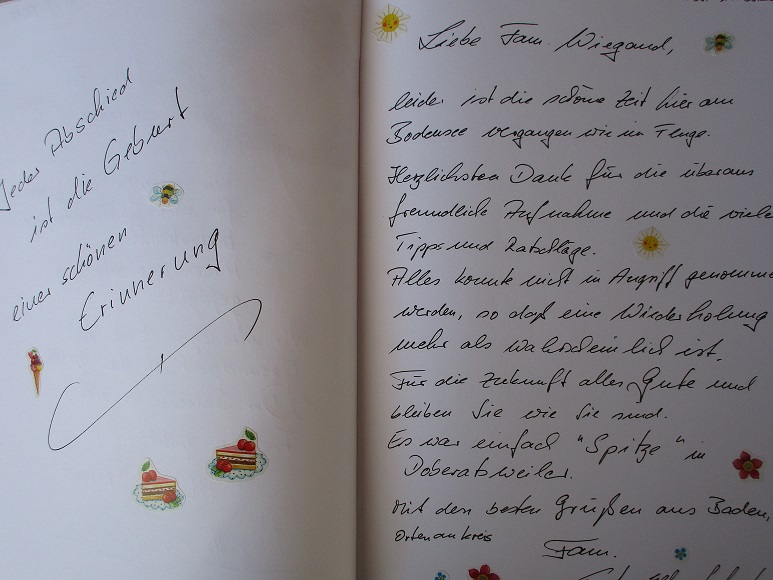 Jeder Abschied
ist die Geburt
einer schönen
Erinnerung
Liebe Fam. Wiegand,
leider ist die schöne Zeit hier am
Bodensee vergangen wie im Fluge.
Herzlichsten Dank für die überaus
freundliche Aufnahme und die viele
Tipps und Ratschläge.
Alles konnte nicht in Angriff genomme
werden, so daß eine Wiederholung
mehr als wahrscheinlich ist.
Für die Zukunft alles Gute und
bleiben Sie wie Sie sind.
Es war einfach "Spitze" in
Doberatsweiler.
Mit den besten Grüßen aus Baden,
Ortenaukreis
Fam.